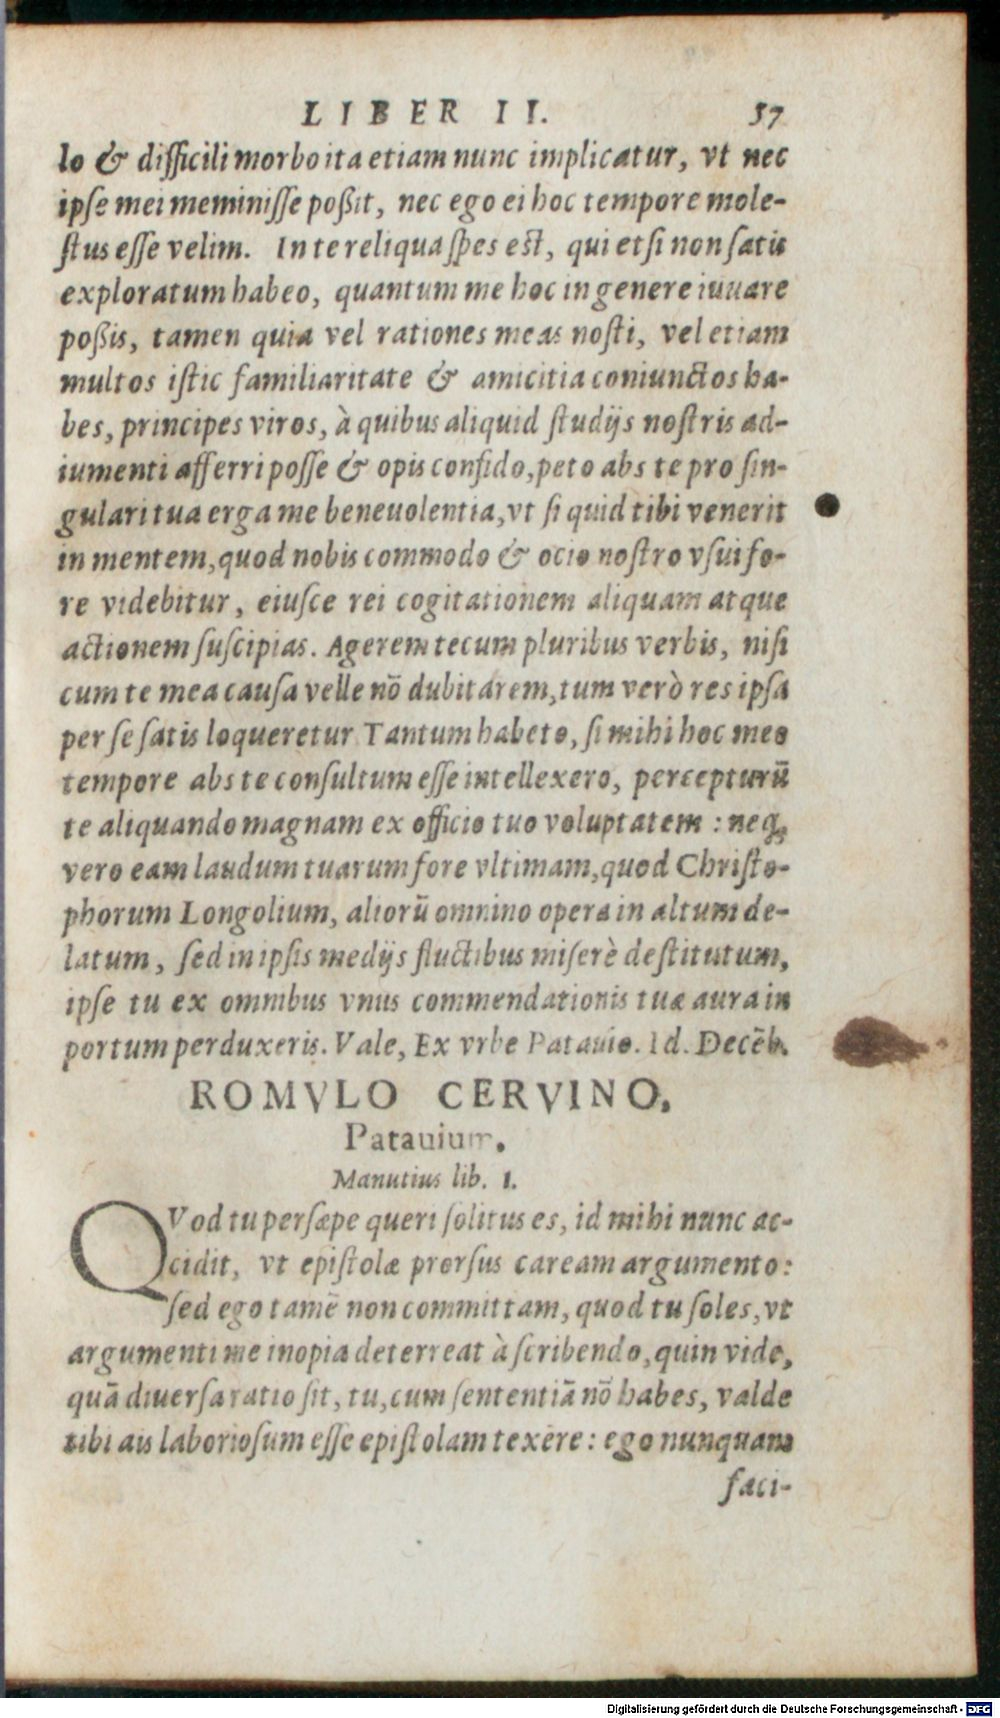 LIBER II. 57
lo & difficili morbo ita etiam nunc implicatur, vt nec
ipse mei meminisse poßit, nec ego ei hoc tempore mole-
stus esse velim. In te reliqua spes est, qui etsi non satis
exploratum habeo, quantum me hoc in genere iuuare
poßis, tamen quia vel rationes meas nosti, vel etiam
multos istic familiaritate & amicitia coniunctos ha-
bes, principes viros, à quibus aliquid studijs nostris ad-
iumenti afferri posse & opis confido, peto abs te pro sin-
gulari tua erga me beneuolentia, vt si quid tibi venerit
in mentem, quod nobis commodo & ocio nostro vsui fo-
re videbitur, eiusce rei cogitationem aliquam atque
actionem suscipias. Agerem tecum pluribus verbis, nisi
cum te mea causa velle nō dubitarem, tum verò res ipsa
per se satis loqueretur Tantum habeto, si mihi hoc meo
tempore abs te consultum esse intellexero, percepturū
te aliquando magnam ex officio tuo voluptatem : neq;
vero eam laudum tuarum fore vltimam, quod Christo-
phorum Longolium, aliorū omnino opera in altum de-
latum, sed in ipsis medijs fluctibus miserè destitutum,
ipse tu ex omnibus vnus commendationis tuæ aura in
portum perduxeris. Vale, Ex vrbe Patauio. Id. Decēb.
ROMVLO CERVINO.
Patauium.
Manutius lib. 1.
QVod tu persæpe queri solitus es, id mihi nunc ac-
cidit, vt epistolæ prorsus caream argumento:
sed ego tamē non committam, quod tu soles, vt
argumenti me inopia deterreat à scribendo, quin vide,
quā diuersa ratio sit, tu, cum sententiā nō habes, valde
tibi ais laboriosum esse epistolam texere: ego nunquam
faci-
Digitalisierung gefördert durch die Deutsche Forschungsgemeinschaft - DFG